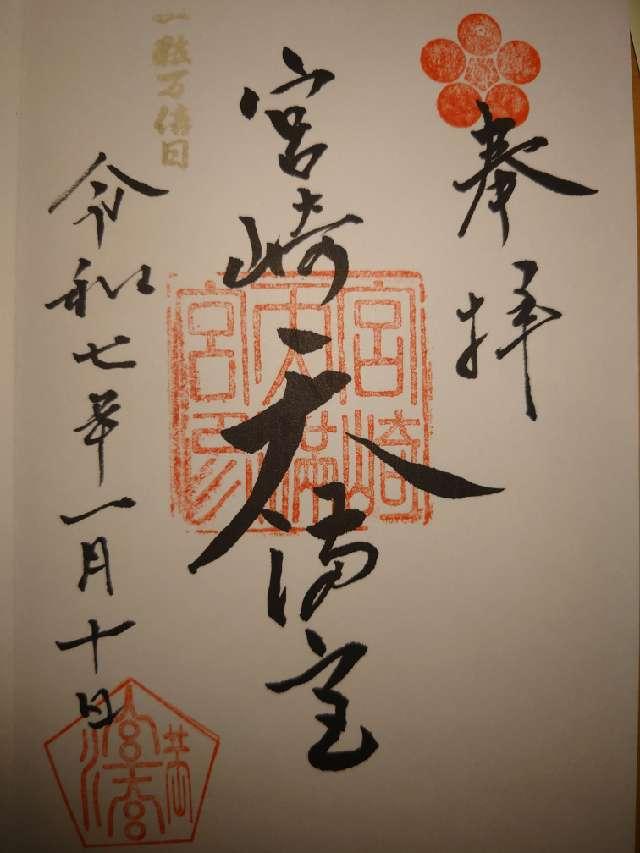 奉拝
宮崎天満宮
宮崎天満宮印
一粒万倍日
令和七年一月十日